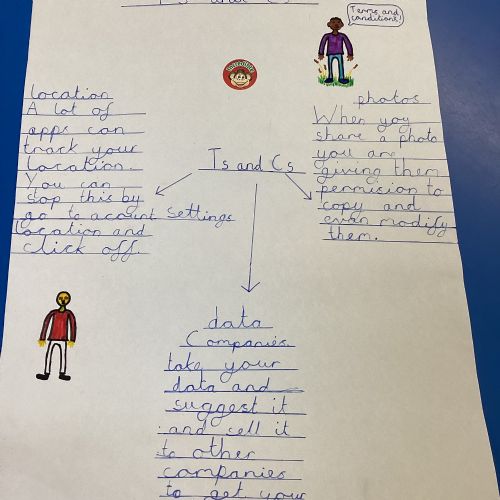 Ts and Cs
Terms and
conditions!
location
A lot of
apps can
track your
location.
You can
stop this by
go to account settings
location and
click off.
Ts and Cs
photos
When yoy
share a photo
you are
giving them
permision to
copy and
even modify
them.
data
Companies
take your
data and
suggest it
and sell it
to other
companies
to get your